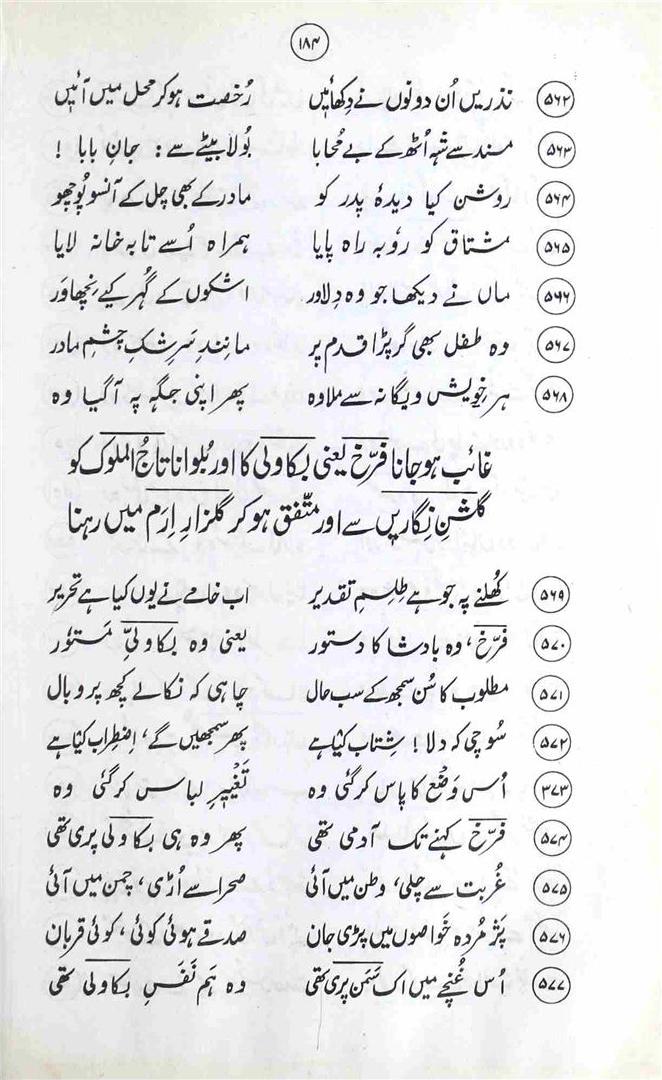 ۱۸۴
۵۶۲ نذریں اُن دونوں نے دِکھائیں رُخصت ہوکر محل میں آئیں
۵۶۳ مسند سے شہ اُٹھ کے بے مُحابا بُولا بیٹے سے: جانِ بابا !
۵۶۴ روشن کیا دیدۂ پدر کو مادر کے بھی چل کے آنسو پُوچھو
۵۶۵ مشتاق کو رُو بہ راہ پایا ہمراہ اُسے تا بہ خانہ لایا
۵۶۶ ماں نے دیکھا جو وہ دِلاور اشکوں کے گُہر کیے نِچھاوَر
۵۶۷ وہ طفل بھی گر پڑا قدم پر مانندِ سَرشکِ چشمِ مادر
۵۶۸ ہر خویش و یگانہ سے ملا وہ پھر اپنی جگہ پہ آگیا وہ
غائب ہوجانا فرّخ یعنی بکاولی کا اور بُلوانا تاجُ الملوک کو
گلشنِ نِگاریں سے اور متّفق ہوکر گلزارِ اِرَم میں رہنا
۵۶۹ کُھلنے پہ جو ہے طِلِسمِ تقدیر اب خامے نے یوں کیا ہے تحریر
۵۷۰ فرّخ، وہ بادشا کا دستور یعنی وہ بکاولیِّ مستور
۵۷۱ مطلوب کا سُن سمجھ کے سب حال چاہی کہ نکالے کچھ پر و بال
۵۷۲ سُوچی کہ دلا! شِتاب کیا ہے پھر سمجھیں گے، اِضطِراب کیا ہے
۳۷۳ اُس وَضْع کا پاس کرگئی وہ تَغْییرِ لباس کرگئی وہ
۵۷۴ فرّخ کہنے تک آدمی تھی پھر وہ ہی بکاولی پری تھی
۵۷۵ غُربت سے چلی، وطن میں آئی صحرا سے اُڑی، چمن میں آئی
۵۷۶ پَژمُردہ خَواصوں میں پڑی جان صدقے ہوئی کوئی، کوئی قربان
۵۷۷ اُس غُنچے میں اک سَمَن پری تھی وہ ہَم نَفَسِ بکاولی تھی